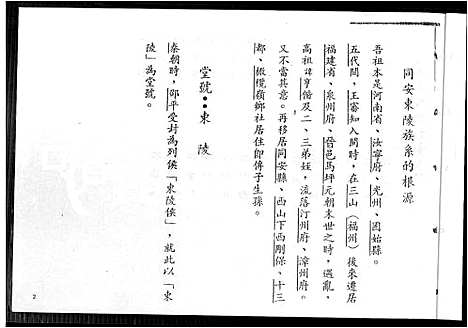 同安東陵族系的根源
吾祖本是河南省、汝寧府、光州、固始縣。
五代間，王審知入閩時，在三山（福州）後來遷居
福建省、泉州府、晉邑馬坪元朝末世之時，遇亂，
高祖諱亨偕及二、三弟姪，流落汀州府、漳州府。
又不當其意。再移居同安縣、西山下西剛保、十三
都、橄欖嶺鄉社居住即傳子生孫。
堂號：東陵
秦朝時，邵平受封為列侯「東陵侯」，就此以「東
陵」為堂號。
2